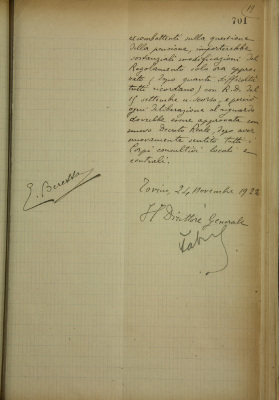 701
excombattenti sulla questione
della pensione, importerebbe
sostanziali modificazioni del
Regolamento solo ora appro-
vato (dopo quante difficoltà
tutti ricordano) con R. D. del
15 settembre u. scorso, e perciò
ogni deliberazione al riguardo
dovrebbe essere approvata con
nuovo Decreto Reale, dopo aver
nuovamente sentito tutti i
Corpi consultivi locali e
centrali.
Torino, 24 Novembre 1922
Il Direttore Generale